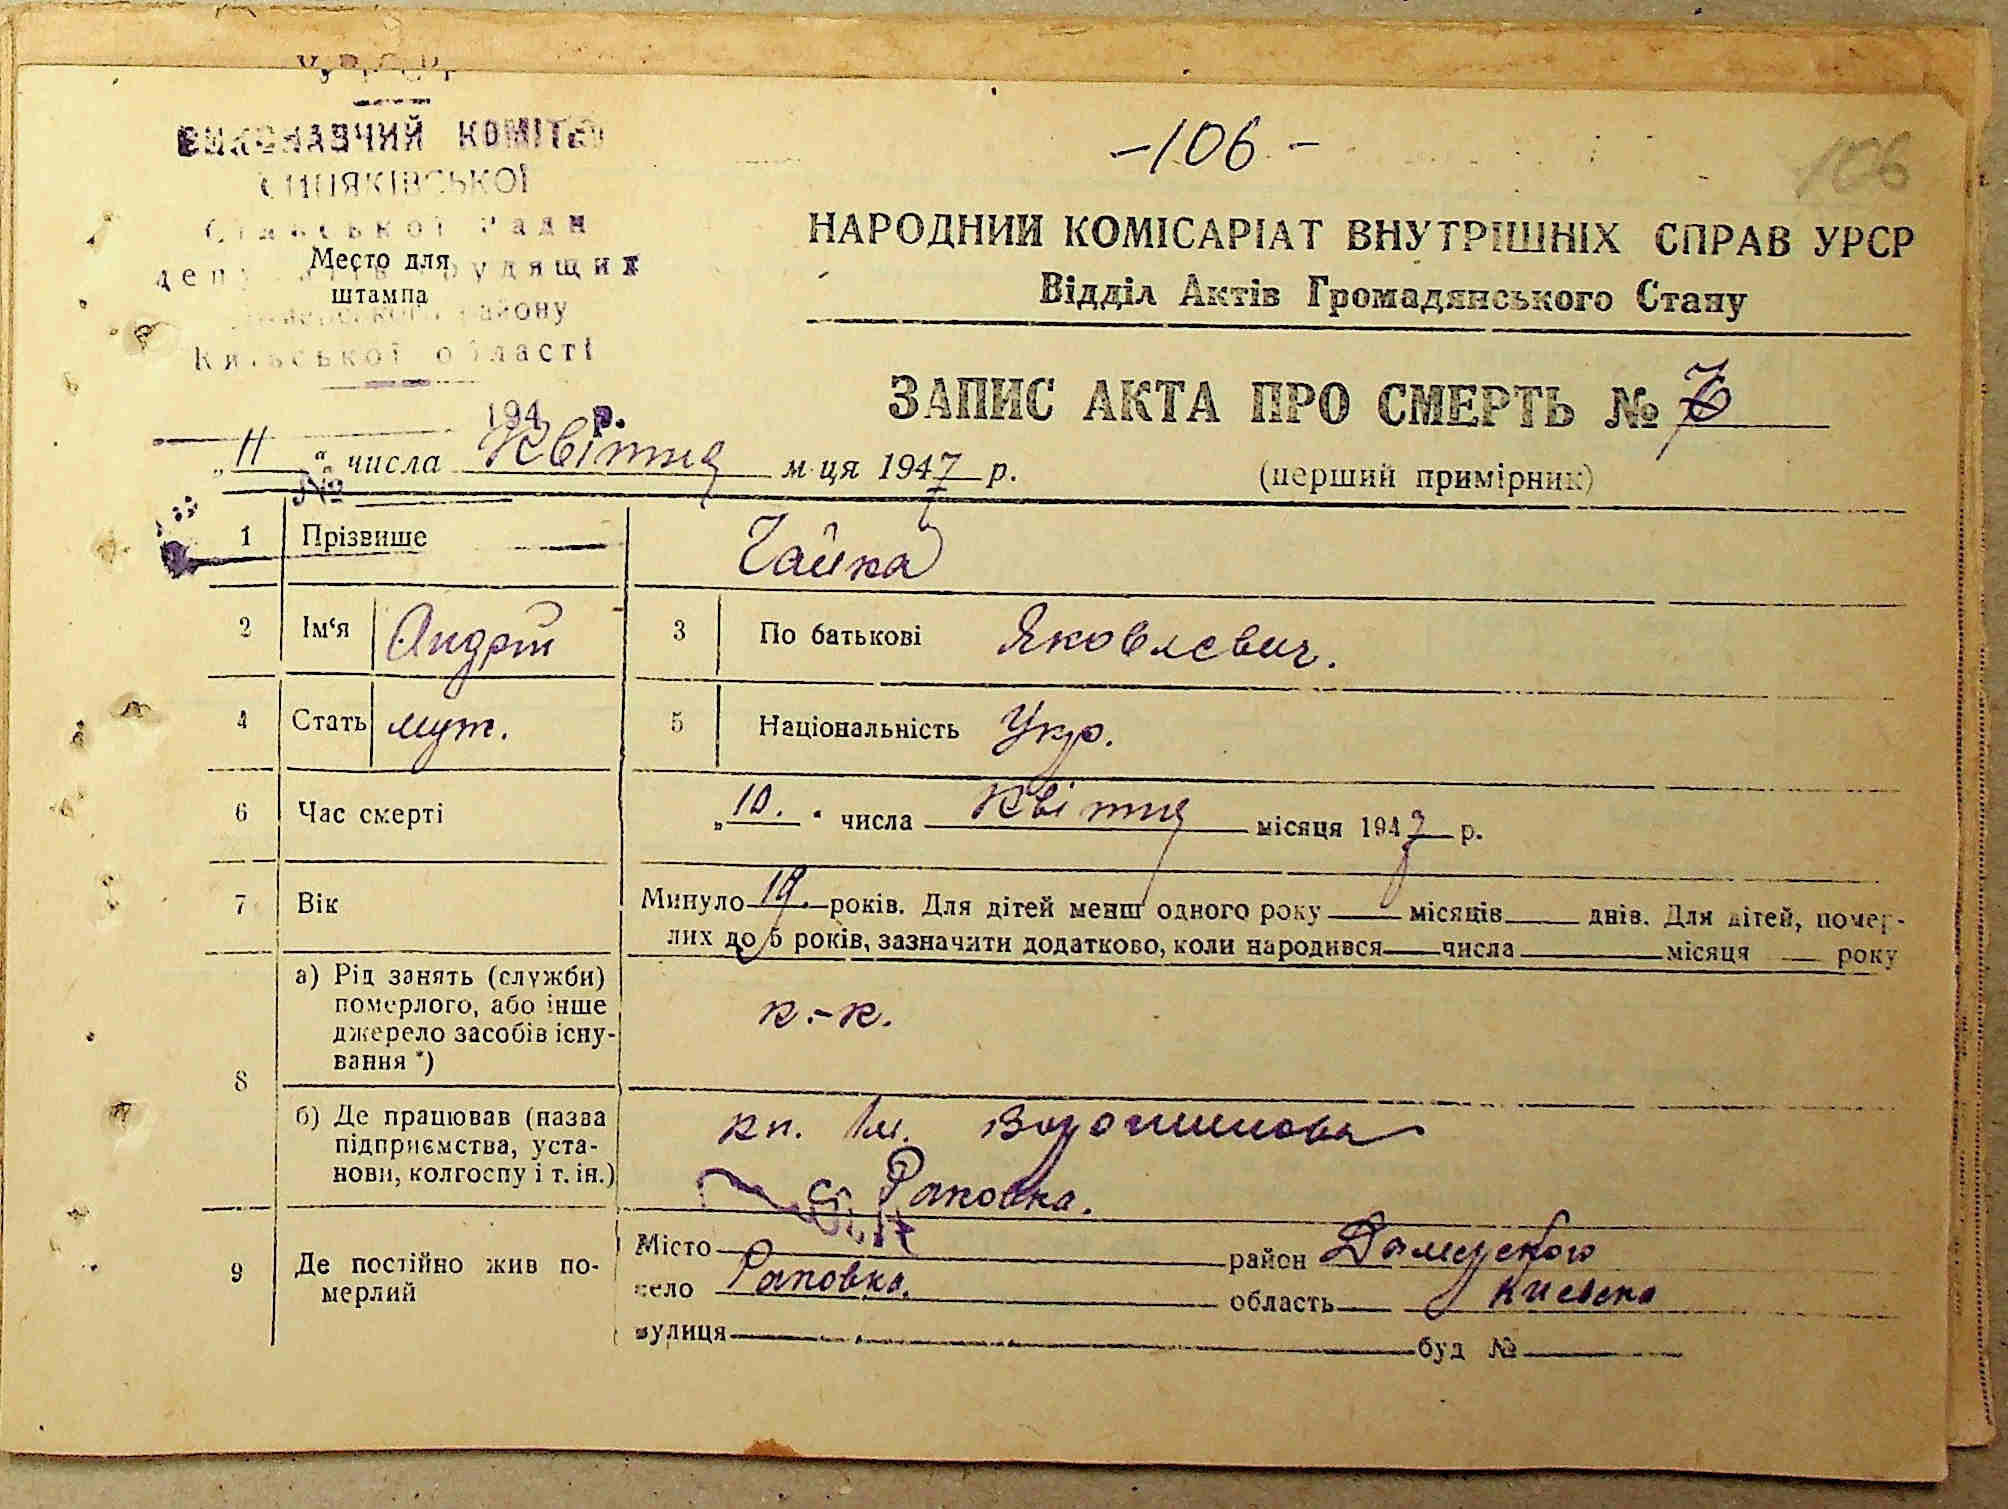 У.Р.С.Р.
ВИКОНАВЧИЙ КОМІТЕТ
СИНЯКІВСЬКОЇ
Сільської Ради
депутатів трудящих
району
Київської області
194 р.
№
Место для
штампа
-106-
106
НАРОДНИЙ КОМІСАРІАТ ВНУТРІШНІХ СПРАВ УРСР
Відділ Актів Громадянського Стану
ЗАПИС АКТА ПРО СМЕРТЬ № 7
(перший примірник)
„11“ числа Квітня м-ця 1947 р.
1 Прізвище Чайка
2 Ім‘я Андрій 3 По батькові Яковлєвич.
4 Стать муж. 5 Національність Укр.
6 Час смерті „10.“ числа Квітня місяця 1947 р.
7 Вік Минуло 19. років. Для дітей менш одного року місяців днів. Для дітей, помер-
лих до 5 років, зазначити додатково, коли народився числа місяця року
8 а) Рід занять (служби)
померлого, або інше
джерело засобів існу-
вання *)
к.-к.
б) Де працював (назва
підприємства, уста-
нови, колгоспу і т. ін.)
кп. Ім. Ворошилова
с. Раковка.
9 Де постійно жив по-
мерлий
Місто район Димерського
село Раковка. область Киевска
вулиця буд №